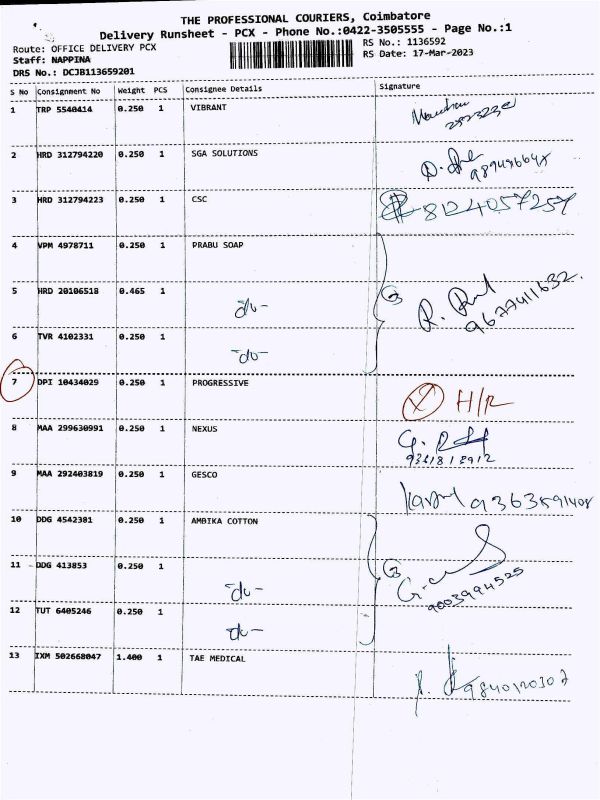 THE PROFESSIONAL COURIERS, Coimbatore
Delivery Runsheet - PCX - Phone No.:0422-3505555 - Page No.:1
Route: OFFICE DELIVERY PCX
RS No.: 1136592
Staff: NAPPINA
RS Date: 17-Mar-2023
DRS No.: DCJB113659201
S No Consignment No Weight PCS Consignee Details Signature
1 TRP 5540414 0.250 1 VIBRANT
2 HRD 312794220 0.250 1 SGA SOLUTIONS
3 HRD 312794223 0.250 1 CSC 8124057257
4 VPM 4978711 0.250 1 PRABU SOAP
5 HRD 20106518 0.465 1 -do-
9677411632.
6 TVR 4102331 0.250 1 -do-
7 DPI 10434029 0.250 1 PROGRESSIVE
H/R
8 MAA 299630991 0.250 1 NEXUS
9 MAA 292403819 0.250 1 GESCO
10 DDG 4542381 0.250 1 AMBIKA COTTON
11 DDG 413853 0.250 1 -do-
9003994525
12 TUT 6405246 0.250 1 -do-
13 IXM 502668047 1.400 1 TAE MEDICAL
9840120307